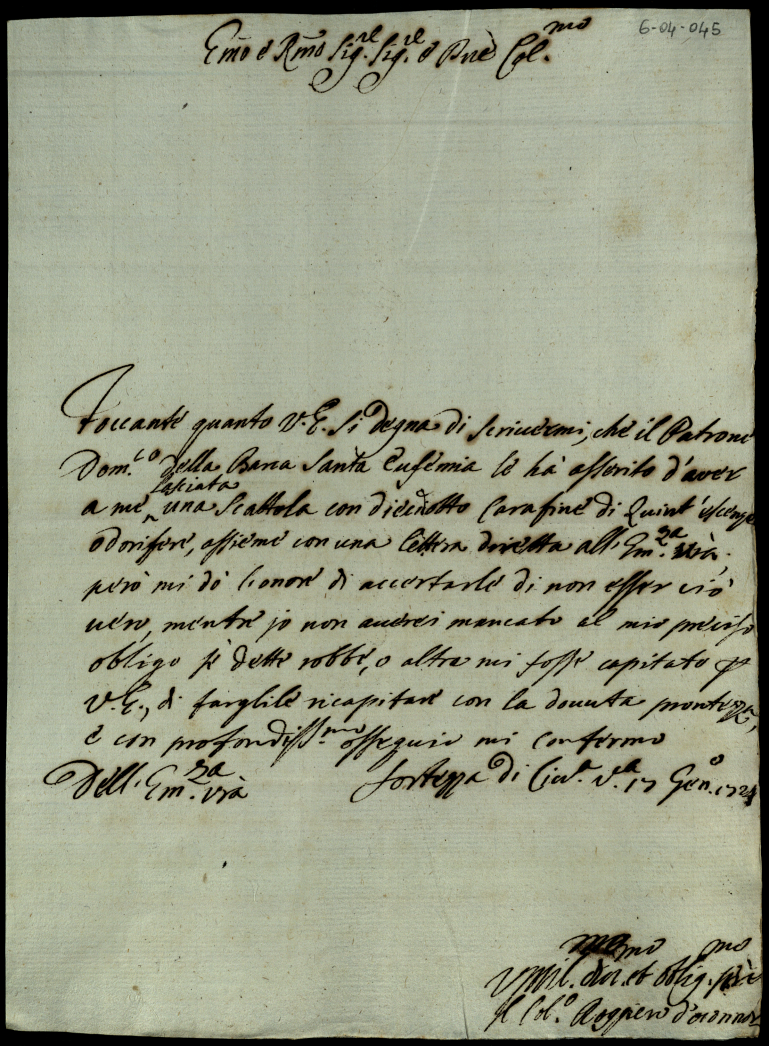 6-04-045
Emo e Rmo Sig.re Sig.re e Pne Col.mo
Toccante quanto V.E. si degna di scriuermi, che il Patrone
Dom.co della Barca Santa Eufemia le hà asserito d'aver
a me lasciata una scattola con diecinotto Carafine di Quint'
odorifere, assieme con una lettera diretta all' Em.za vrà.
però mi dò l'onore di accertarle di non esser ciò
uero, mentre jo non auerei mancato al mio preciso
obligo se dette robbe, o altra mi fosse capitato p
V.E., di farglile ricapitare con la douuta prontezza,
e con profondiss.mo ossequio mi confermo
Dell' Em.za vrà Fortezza di Ciu.a V.a 17 Gen.o 1724
Vmil.mo diu. et oblig.mo
Il Col.o Ruggiero d'oconnor